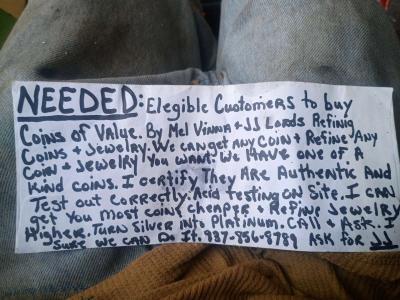 NEEDED: Elegible Customers to buy
Coins of Value. By Mel Vinna + JJ Lords Refinig
Coins + Jewelry. We can get any Coin + Refine Any
Coin + Jewelry You want. We Have one of A
Kind coins. I certify They Are Authentic And
Test out correctly. Acid testing on Site. I can
get You Most coins cheaper + Refine Jewelry
Higher. Turn Silver into Platinum. Call + Ask. I
Sure we can Do It. 937-856-8789 Ask for JJ